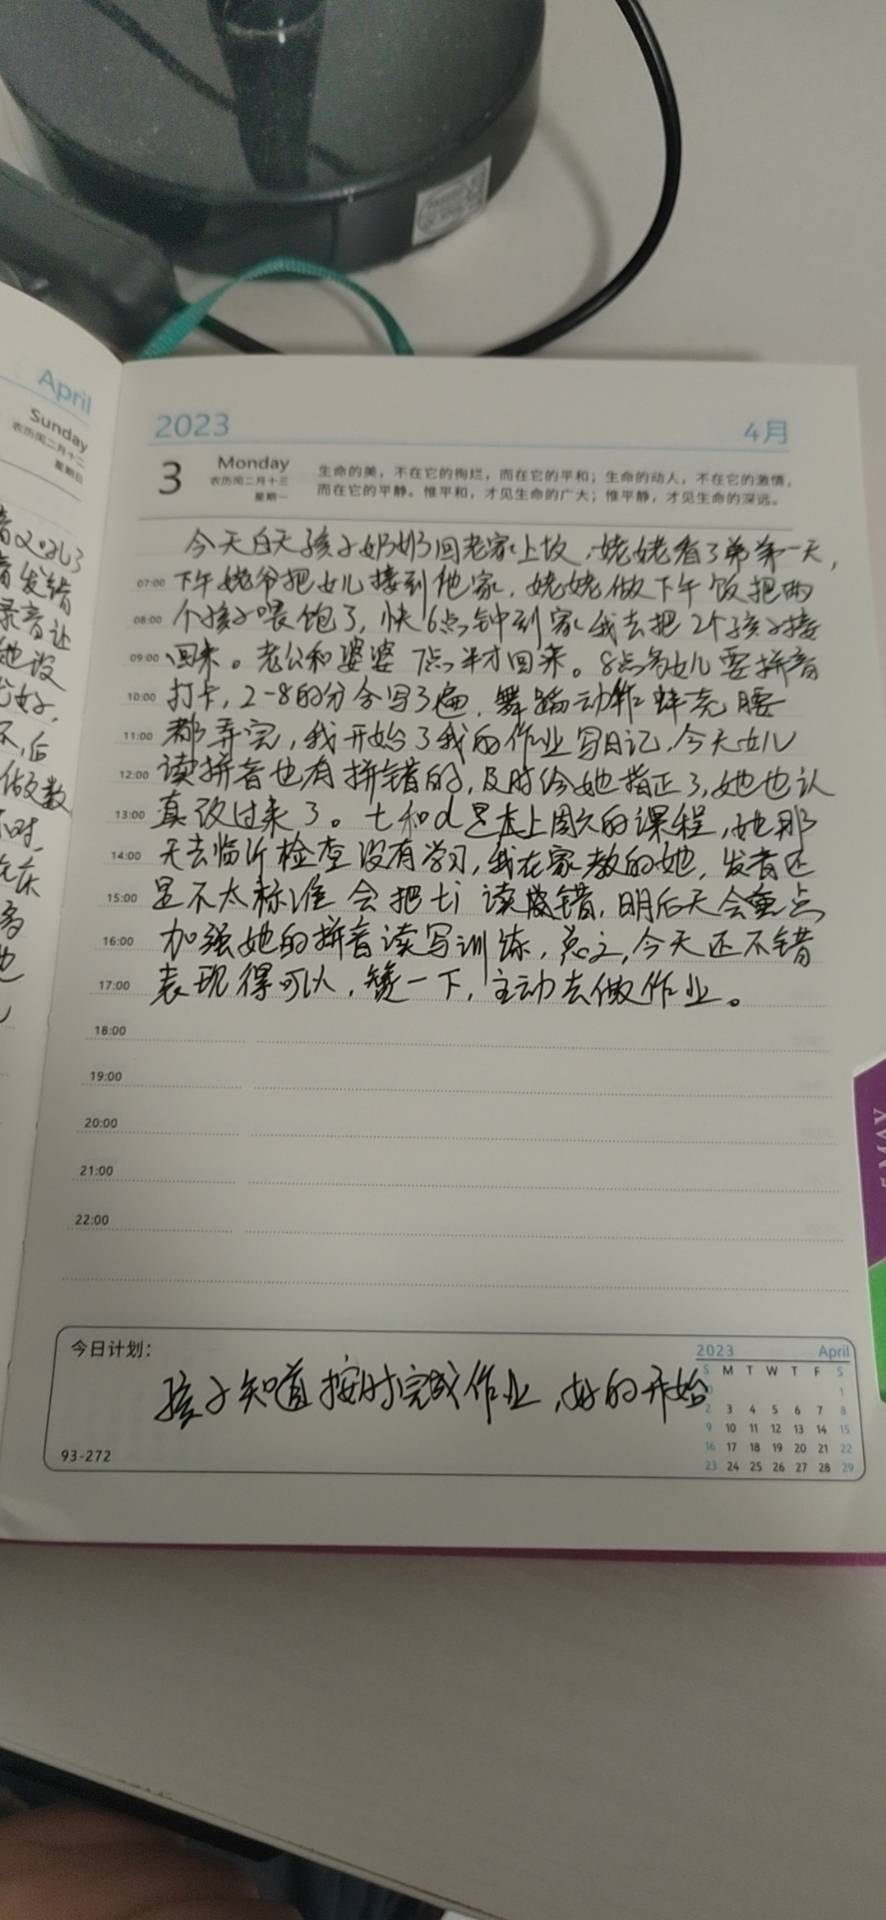 April
Sunday
农历闰二月十二
星期日
2023
4月
3
Monday
农历闰二月十三
星期一
生命的美，不在它的绚烂，而在它的平和；生命的动人，不在它的激情，
而在它的平静。惟平和，才见生命的广大；惟平静，才见生命的深远。
今天白天孩子奶奶回老家上坟，姥姥看了弟弟一天，
07:00 下午姥爷把女儿接到他家，姥姥做下午饭把两
08:00 个孩子喂饱了，快6点钟到家我去把2个孩子接
09:00 回来。老公和婆婆7点半才回来。8点多女儿要拼音
10:00 打卡，2-8的分合写3遍，舞蹈动作蚌壳腰
11:00 都弄完，我开始了我的作业写日记，今天女儿
12:00 读拼音也有拼错的，及时给她指正了，她也认
13:00 真改过来了。t和d是上周六的课程，她那
14:00 天去临沂检查没有学习，我在家教的她，发音还
15:00 是不太标准会把ti读错，明后天会重点
16:00 加强她的拼音读写训练，总之，今天还不错
17:00 表现得可以，赞一下，主动去做作业。
18:00
19:00
20:00
21:00
22:00
今日计划：
孩子知道按时完成作业，好的开始
93-272
2023 April
S M T W T F S
1
2 3 4 5 6 7 8
9 10 11 12 13 14 15
16 17 18 19 20 21 22
23 24 25 26 27 28 29
MAY